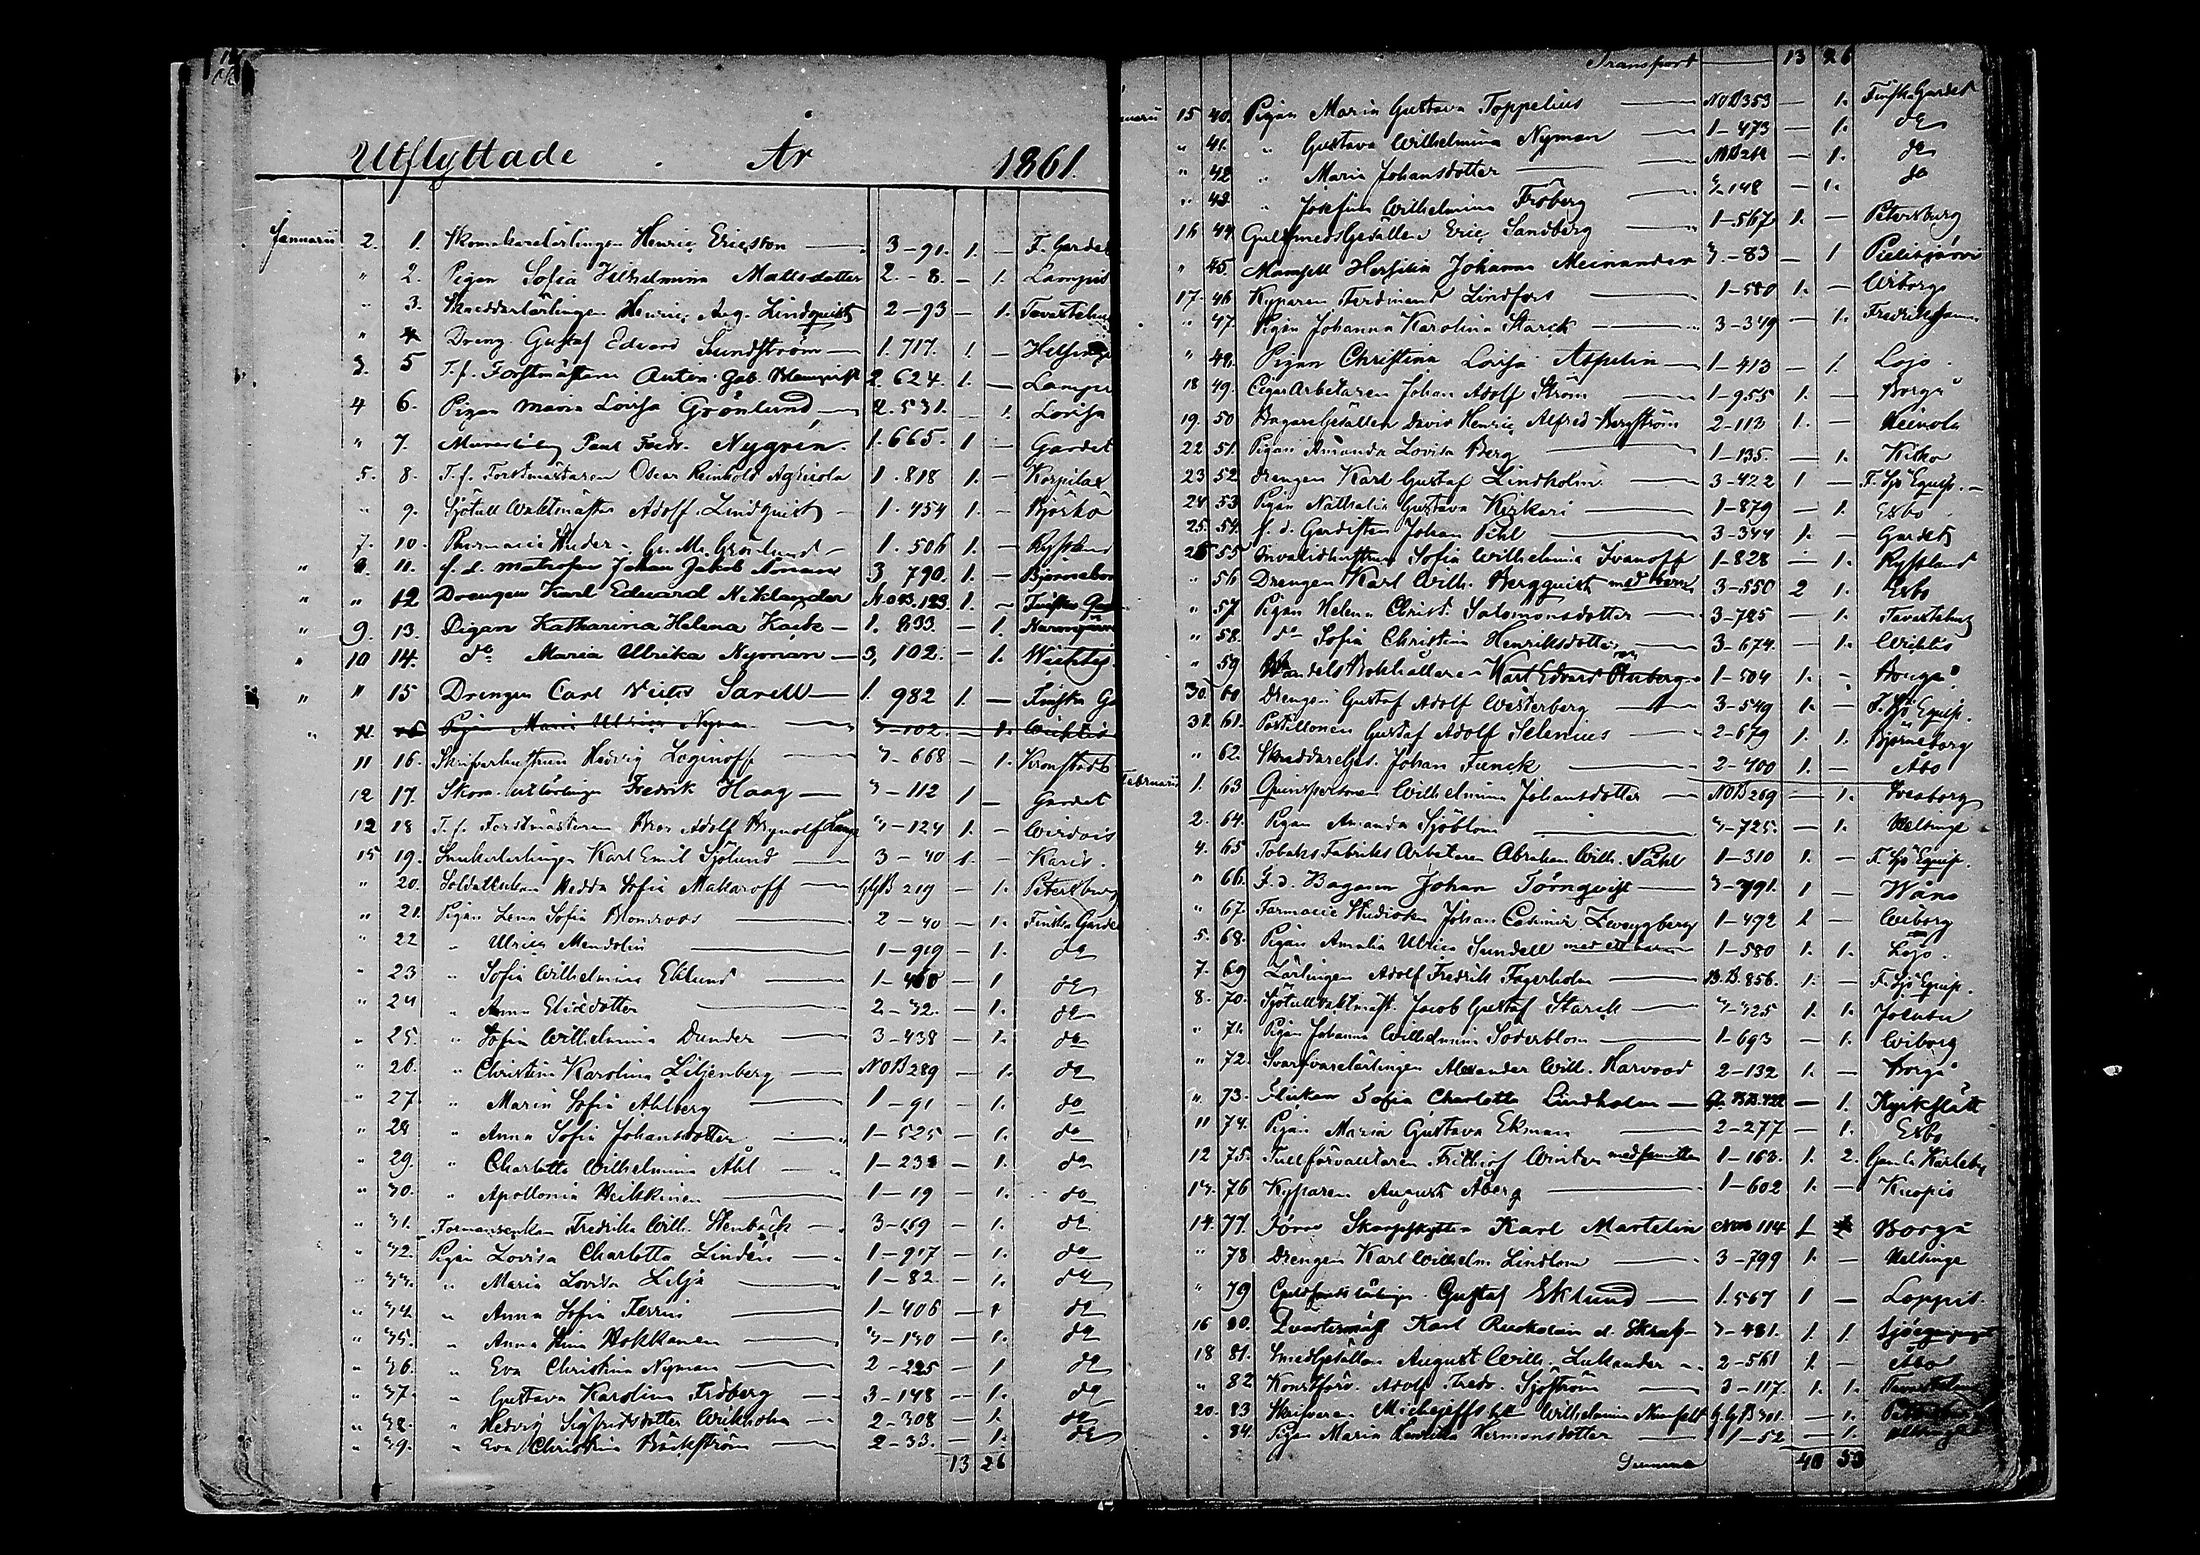 Utflyttade År 1861.
Januarii 2. 1. Skomakarelärlingen Henric Ericsson 3-91. 1. — F. Gardet
" 2. Pigan Sofia Wilhelmina Mattsdotter 2.-8. — 1. Lampis
" 3. Skräddarlärlingen Henric Aug. Lindqvist 2-93 — 1. Tavastehus
" 4 Dreng. Gustaf Edvard Sundström 1. 717. 1. — Helsinge
3. 5 T.f. Forstmästaren Anton Gab. Blomqvist 2. 624. 1. — Lampis
4 6. Pigan Maria Lovisa Grönlund 2. 531. 1. Lovisa
" 7. Murarelärling Paul Fredr. Nygrén. 1. 665. 1 — Gardet
5. 8. T.f. Forstmästaren Oscar Reinhold Agricola 1. 818 1. — Korpilax
" 9. Sjötull Vaktmästar Adolf Lindquist 1. 454 1. — Björkö
7. 10. Pharmacie Studer. G. M. Grönlund 1. 506 1. — Ryssland
" 8. 11. f.d. matrosen Johan Jakob Noman 3 790. 1. — Björneborg
" " 12 Drengen Karl Edvard Niklander N.O.B. 123 1. — Finska Gard
" 9. 13. Pigan Katharina Helena Kack 1. 833. — 1. Nurmijärvi
" 10 14. do Maria Ulrika Nyman 3, 102. — 1. Wichtis
" " 15 Drengen Carl Sarell 1. 982 1. — Finska G
" 11. 16 Pigan Maria Ulrica Nyman 3-102. — 1. Wichtis
11 16. Skrifvarhustrun Hedvig Loginoff 3-668 — 1. Kronstadt
12 17. Skom. lärlingen Fredrik Haag 3-112 1 — Gardet
12 18 T.f. Forstmästaren Bror Adolf Brynolf Lang 3-124 1. — Wirdois
15 19. Snickerlärlingen Karl Emil Sjölund 3-40 1. — Karis.
" 20. Soldatenkan Hedda Sofia Makaroff GGB 219 — 1. Petersburg
" 21. Pigan Lena Sofia Blomroos 2-40 — 1. Finska Garde
" 22 " Ulrica Mendolin 1-919 — 1. do
" 23 " Sofia Wilhelmina Eklund 1-400 — 1 do
" 24 " Anna Elisdotter 2-32. — 1. do
" 25. " Sofia Wilhelmina Dunder 3-438 — 1. do
" 26. " Christina Karolina Liljenberg NOB 289 — 1. do
" 27 " Maria Sofia Ahlberg 1-91 — 1. do
" 28 " Anna Sofia Johansdotter 1-525 — 1. do
" 29. " Charlotta Wilhelmina Åhl 1-233 — 1. do
" 30. " Apollonia Heikkinen 1-19 — 1. do
" 31. Formansenkan Fredrika Wilh. Stenbäck 3-169 — 1. do
" 32. Pigan Lovisa Charlotta Lindén 1-917 — 1. do
" 33. " Maria Lovisa Lilja 1-82. — 1. do
" 34. " Anna Sofia Ferrin 1-406 — 1 do
" 35. " Anna Stina Hokkanen 3-130 — 1. do
" 36. " Eva Christina Nyman 2-225 — 1 do
" 37. " Gustava Karolina Fröberg 3-148 — 1. do
" 38. " Hedvig Sigfridsdotter Wikholm 2-308 — 1. do
" 39. " Eva Christina Bäckström 2-33. — 1. do
13 26
Transport 13 26
15 40. Pigan Maria Gustava Toppelius NOB 353 — 1. Finska Gardet
" 41. " Gustava Wilhelmina Nyman 1-473 — 1. do
" 42 " Maria Johansdotter — 1. do
" 43. " Josefina Wilhelmina Fröberg 3-148 — 1. do
16 44 Guldsmedsgesällen Eric Sandberg 1-567 1. — Petersburg
" 45. Mamsell Hersilia Johanna Meinander 3-83 — 1 Pielisjärvi
17. 46 Kyparen Ferdinand Lindfors 1-580 1. — Wiborg
" 47. Pigan Johanna Karolina Starck 3-349 — 1. Fredrikshamn
" 48. Pigan Christina Lovisa Aspelin 1-413 — 1. Lojo.
18 49. Cigarrarbetaren Johan Adolf Ström 1-955 1. — Borgå
19. 50 Bagaregesällen David Henric Alfred Bergström 2-113 1. — Heinola
22 51. Pigan Amanda Lovisa Berg 1-135 — 1. Kisko
23 52 Drengen Karl Gustaf Lindholm 3-422 1 — F. Sjö Equip.
24 53 Pigan Nathalia Gustava Kiskari 1-879 — 1. Esbo
25. 54. f.d. Gardisten Johan Pihl 3-344 1. — Gardet
26 55 Invalidhustrun Sofia Wilhelmina Ivanoff 1-828 — 1. Ryssland
" 56 Drengen Karl Wilh. Bergquist med barn 3-550 2 1. Esbo
" 57 Pigan Helena Christ. Salomonsdotter 3-785 — 1. Tavastehus
" 58. do Sofia Christina Henriksdotter 3-674. — 1. Wichtis
" 59 Handels Bokhållaren Karl Edvard Öhrberg 1-504 1. — Borgå
30 60 Drengen Gustaf Adolf Westerberg 3-549 1. — F. Sjö Equip.
31. 61. Postillonen Gustaf Adolf Selenius 2-679 1. 1. Björneborg
" 62. Skräddareges. Johan Funck 2-400 1. — Åbo
Februarii 1. 63 Qvinspersonen Wilhelmina Johansdotter NOB 269 — 1. Sveaborg
2. 64. Pigan Amanda Sjöblom 3-725. — 1. Helsinge
4. 65 Tobaks Fabriks Arbetaren Abraham Wilh. Påhl 1-310 1. — F. Sjö Equip.
" 66. F.d. Bagaren Johan Törnqvist 3-791. 1 — Wånå
" 67. Farmacie Studiosen Johan Casimir Zweygberg 1-472 1 — Wiborg
5. 68. Pigan Amalia Ulrica Sundell med ett barn 1-580 1. 1. Lojo.
7. 69 Lärlingen Adolf Fredrik Fagerholm B.B. 856. 1. — F. Sjö Equip.
8. 70. Sjötullvaktmäst. Jacob Gustaf Starck 3-325 1. 1. Jolutu
" 71. Pigan Johanna Wilhelmina Söderblom 1-693 — 1. Wiborg
" 72. Svarfvarelärlingen Alexander Will. Harvood 2-132 1. — Borgå
" 73. Flickan Sofia Charlotta Lindholm — 1. Kyrkslätt
11 74. Pigan Maria Gustava Ekman 2-277 — 1. Esbo
12 75. Tullförvaltaren Frithiof Winter med familten 1-163. 1. 2. Gamla Karleby
13. 76 Kyparen August Åberg 1-602 1. — Kuopio
14. 77. Förra Skarpskytten Karl Martelin 114 1 Borgå
" 78 Drengen Karl Wilhelm Lindblom 3-799 1. — Helsinge
" 79 Guldsmedslärling. Gustaf Eklund 1. 567 1 — Loppis.
16 80. Qvartermäst Karl 3-481. 1. 1.
18 81. Smedgesällen August Wilh. Lukander 2-561 1. — Åbo
" 82 Konstförv. Adolf Fredr. Sjöström 3-117. 1. 1. Tavastehus
20. 83 Skrifvaren Wilhelmina 301. — 1.
" 84. Pigan Maria Henrika Hermansdotter 1-52 — 1. Helsinge
Summa 40 53